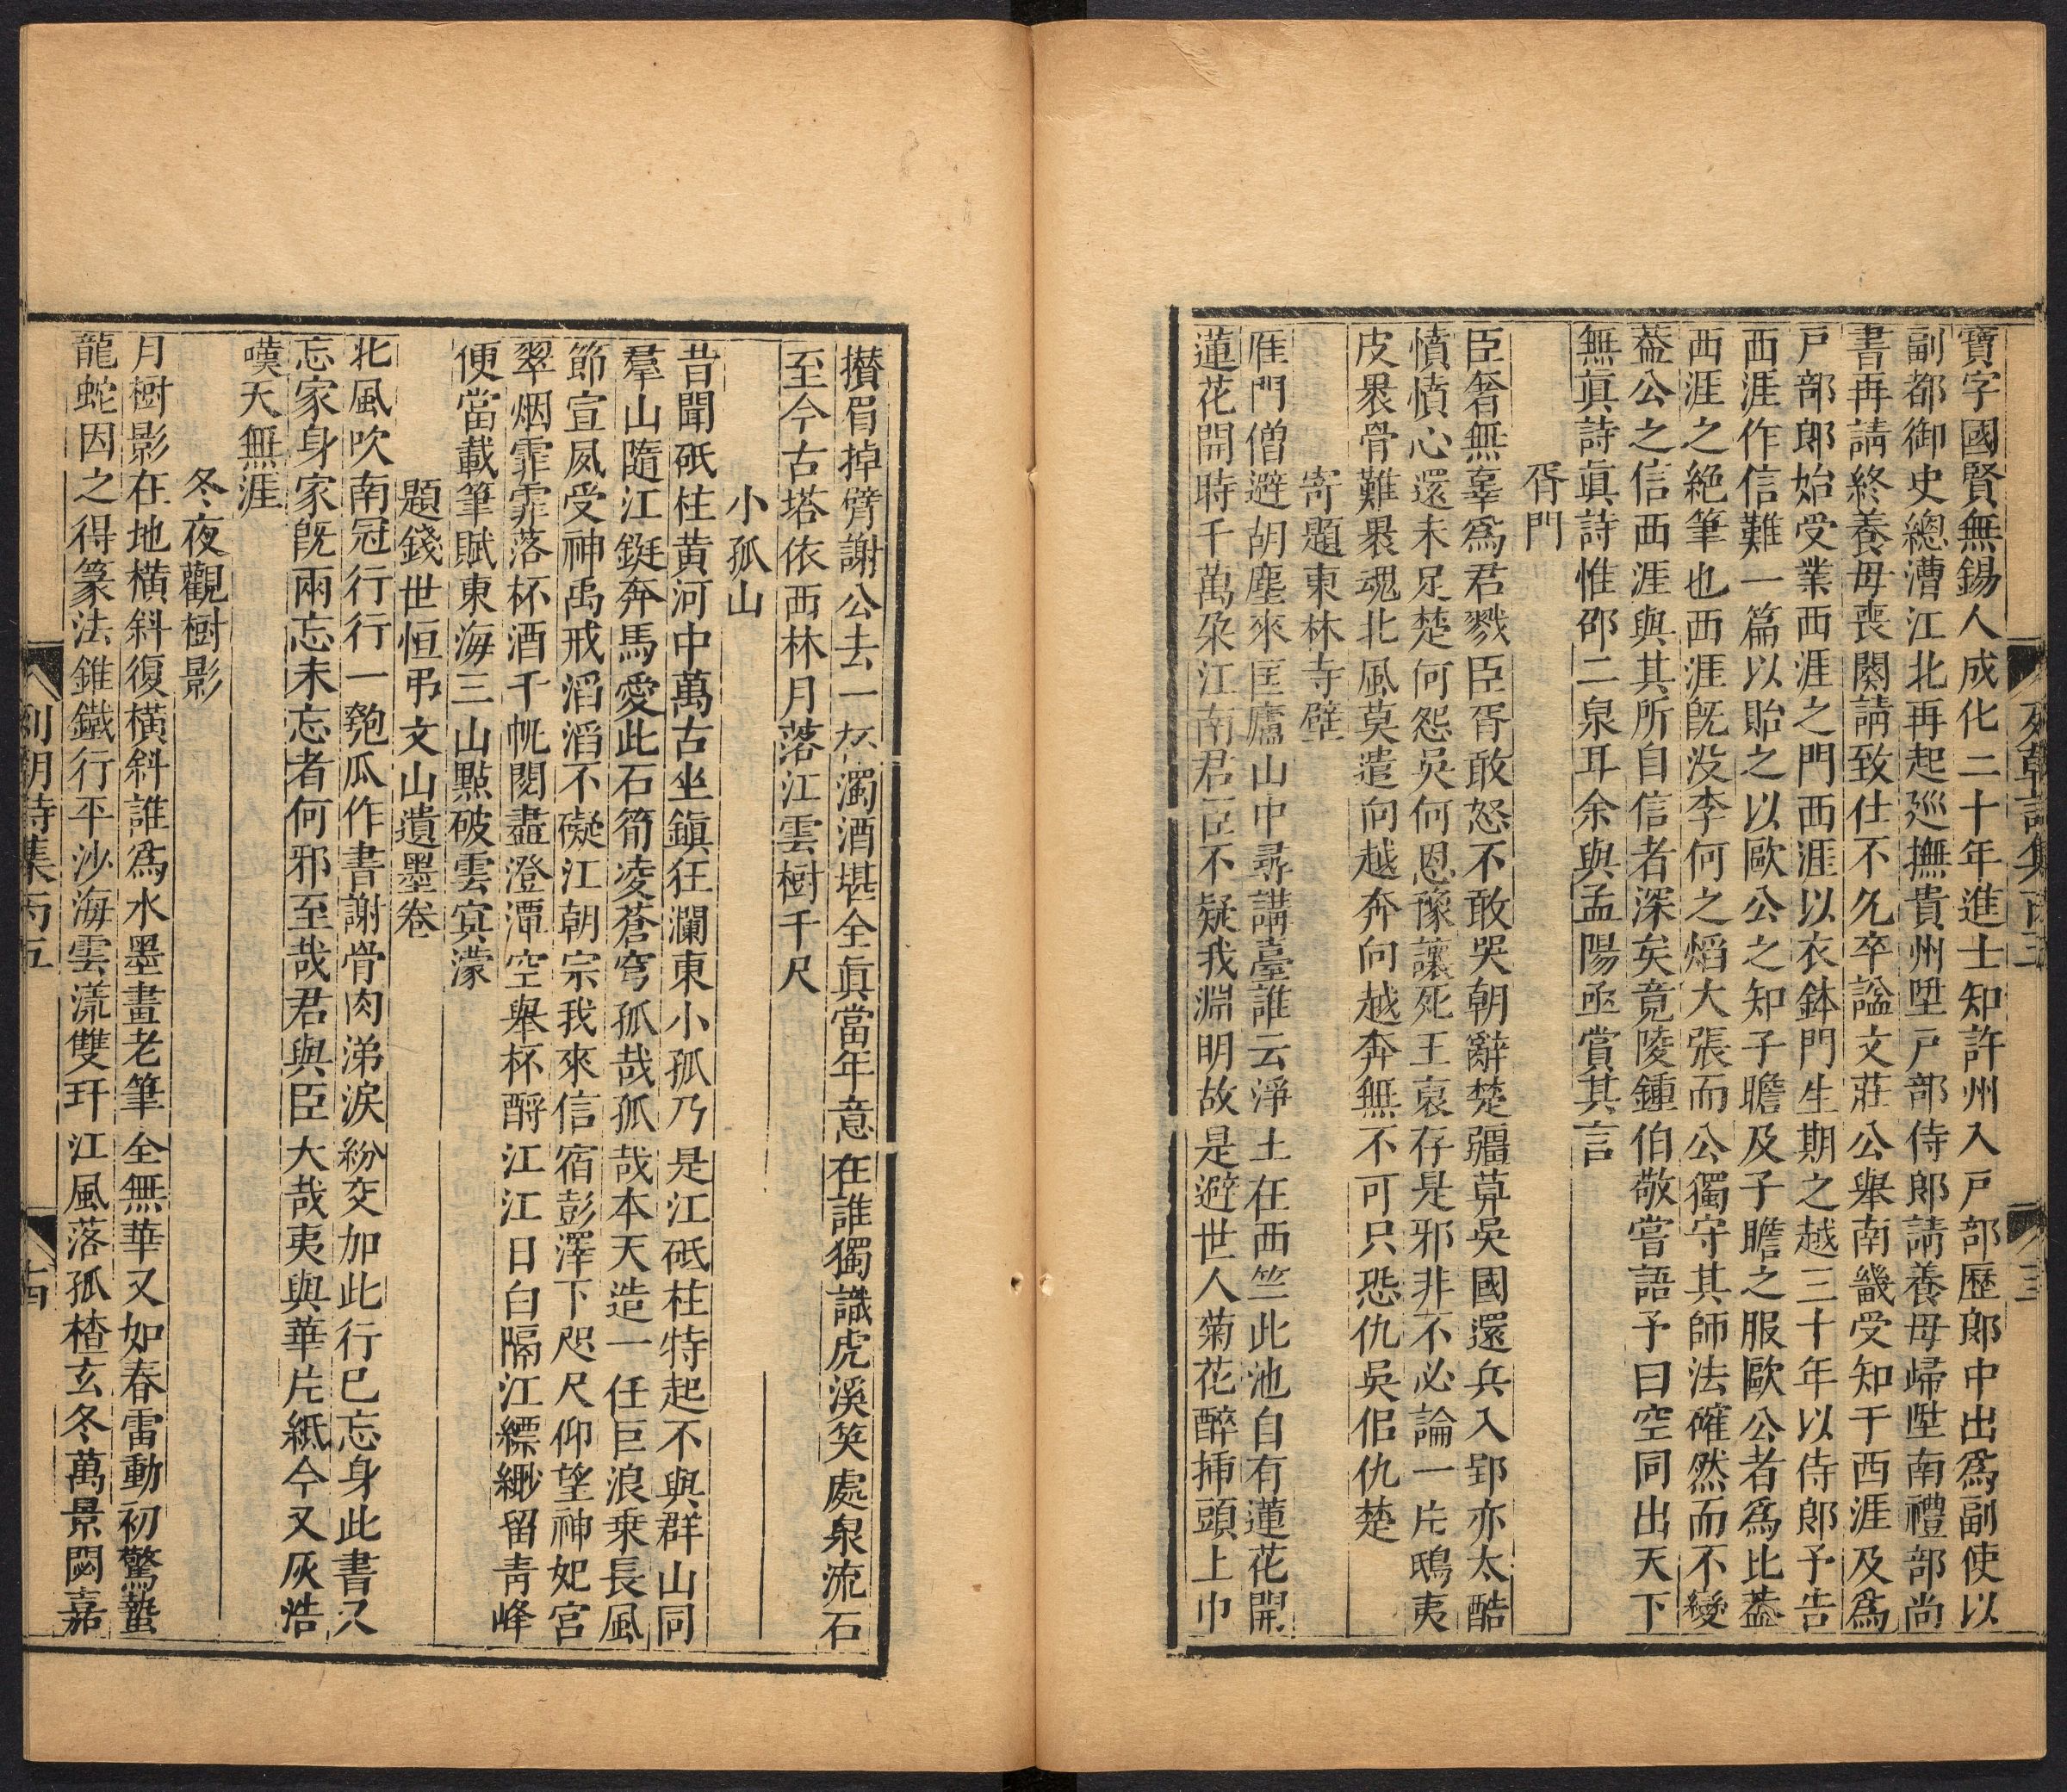 列朝詩集丙五
三
寶字國賢無錫人成化二十年進士知許州入戸部歷郎中出爲副使以
副都御史總漕江北再起廵撫貴州陞戸部侍郎請養母歸陞南禮部尚
書再請終養母喪闋請致仕不允卒諡文莊公舉南畿受知于西涯及爲
戸部郎始受業西涯之門西涯以衣鉢門生期之越三十年以侍郎予告
西涯作信難一篇以貽之以歐公之知子瞻及子瞻之服歐公者爲比葢
西涯之絶筆也西涯旣没李何之熖大張而公獨守其師法確然而不變
葢公之信西涯與其所自信者深矣竟陵鍾伯敬嘗語予曰空同出天下
無眞詩眞詩惟邵二泉耳余與孟陽亟賞其言
胥門
臣奢無辜爲君戮臣胥敢怒不敢哭朝辭楚疆莫吳國還兵入郢亦太酷
憤憤心還未足楚何怨吳何恩豫讓死王裒存是邪非不必論一片鴟夷
皮裹骨難裹魂北風莫遣向越奔向越奔無不可只恐仇吳侣仇楚
寄題東林寺壁
雁門僧避胡塵來匡廬山中尋講臺誰云淨土在西竺此池自有蓮花開
蓮花開時千萬朶江南君臣不疑我淵明故是避世人菊花醉揷頭上巾
攅眉掉臂謝公去一杯濁酒堪全眞當年意在誰獨識虎溪笑處泉流石
至今古塔依西林月落江雲樹千尺
小孤山
昔聞砥柱黄河中萬古坐鎮狂瀾東小孤乃是江砥柱特起不與群山同
羣山隨江鋌奔馬愛此石筍凌蒼穹孤哉孤哉本天造一任巨浪乗長風
節宣夙受神禹戒滔滔不礙江朝宗我來信宿彭澤下咫尺仰望神妃宮
翠烟霏霏落杯酒千帆閱盡澄潭空舉杯酹江江日白隔江縹緲留青峰
便當載筆賦東海三山點破雲㝠濛
題錢世恒弔文山遺墨卷
北風吹南冠行行一匏瓜作書謝骨肉涕淚紛交加此行已忘身此書又
忘家身家旣兩忘未忘者何邪至哉君與臣大哉夷與華片紙今又灰浩
嘆天無涯
冬夜觀樹影
月樹影在地横斜復横斜誰爲水墨畫老筆全無華又如春雷動初驚蟄
龍蛇因之得篆法錐鐵行平沙海雲漾雙玕江風落孤楂玄冬萬景閟嘉
列朝詩集丙五
十四